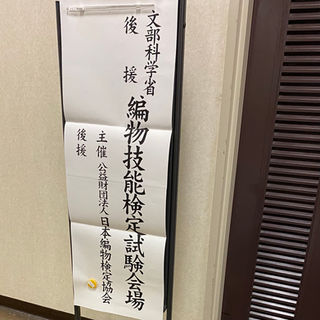 文部科学省
後援
編物技能検定試験会場
主催
後援
公益財団法人日本編物検定協会